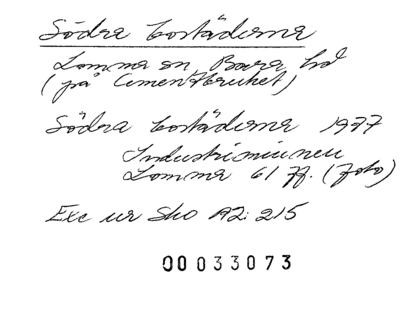 Södra bostäderna
Lomma sn Bara hd
(på Cementbruket)
Södra bostäderna 1977
Industriminnen
Lomma 61 ff. (foto)
Exc ur Sho A92: 215
00033073